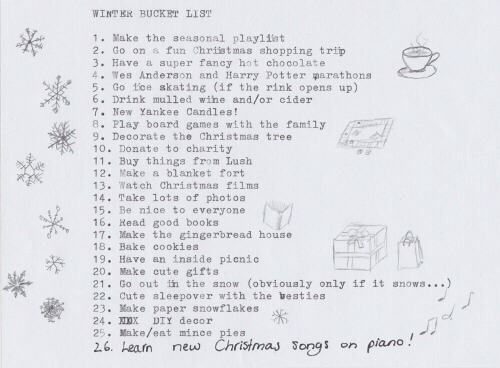 WINTER BUCKET LIST
1. Make the seasonal playlist
2. Go on a fun Christmas shopping trip
3. Have a super fancy hot chocolate
4. Wes Anderson and Harry Potter marathons
5. Go ice skating (if the rink opens up)
6. Drink mulled wine and/or cider
7. New Yankee Candles!
8. Play board games with the family
9. Decorate the Christmas tree
10. Donate to charity
11. Buy things from Lush
12. Make a blanket fort
13. Watch Christmas films
14. Take lots of photos
15. Be nice to everyone
16. Read good books
17. Make the gingerbread house
18. Bake cookies
19. Have an inside picnic
20. Make cute gifts
21. Go out in the snow (obviously only if it snows...)
22. Cute sleepover with the besties
23. Make paper snowflakes
24. DIY decor
25. Make/eat mince pies
26. Learn new Christmas songs on piano!